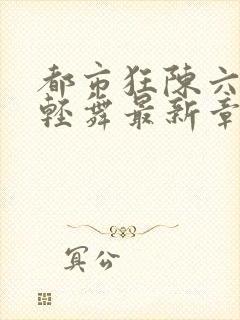 都市狂陈六
轻舞最新章
冥公